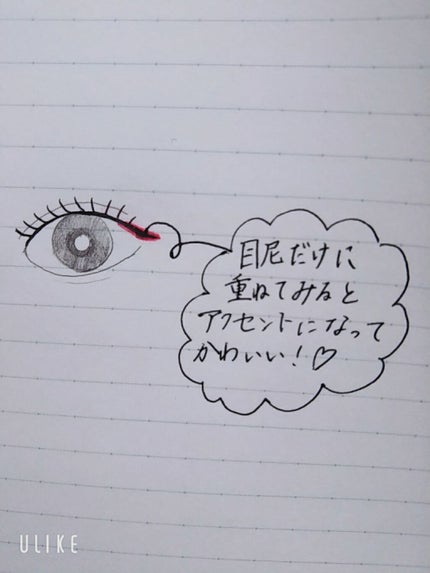 目尻だけに
重ねてみると
アクセントになって
かわいい！♡
ULIKE